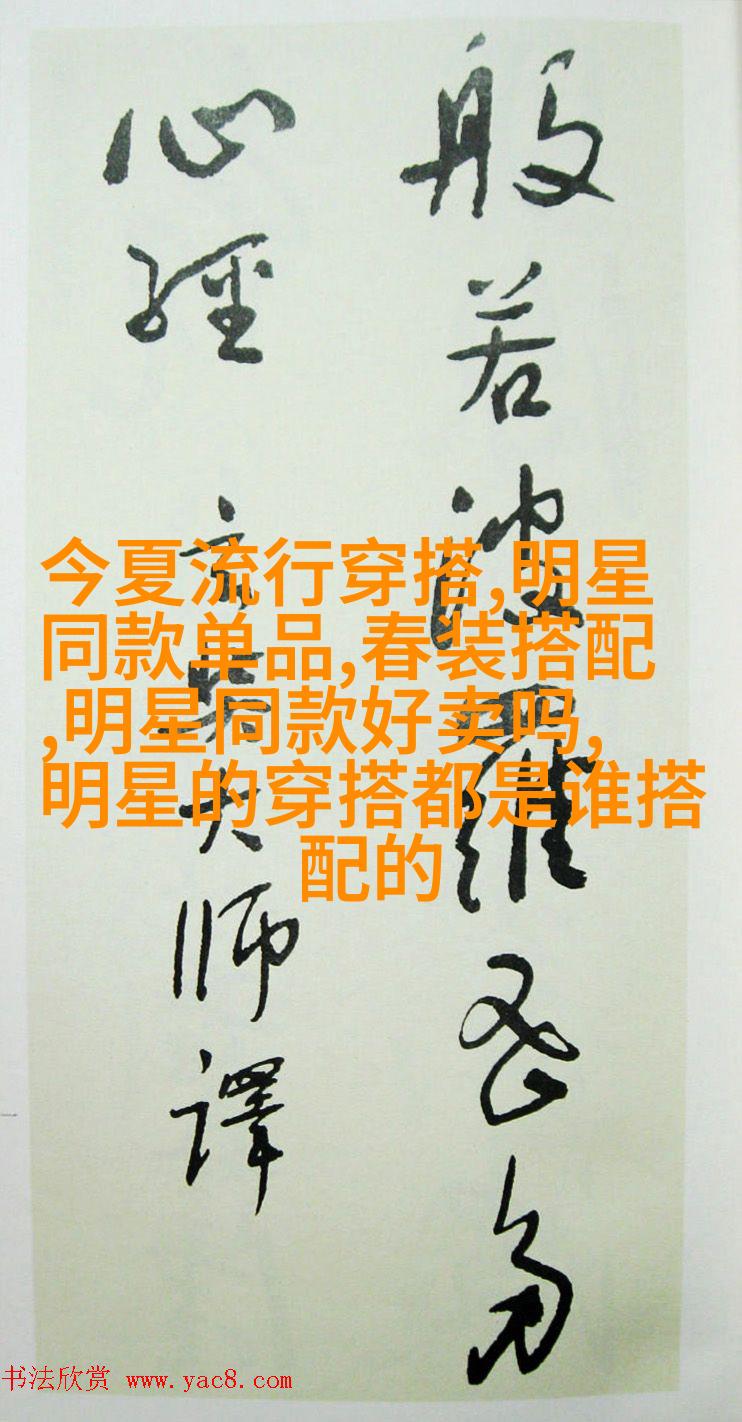 般若波羅密多
心經 玄奘大師譯
今夏流行穿搭,明星
同款单品,春装搭配
,明星同款好卖吗,
明星的穿搭都是谁搭
配的
书法欣赏 www.yac8.com